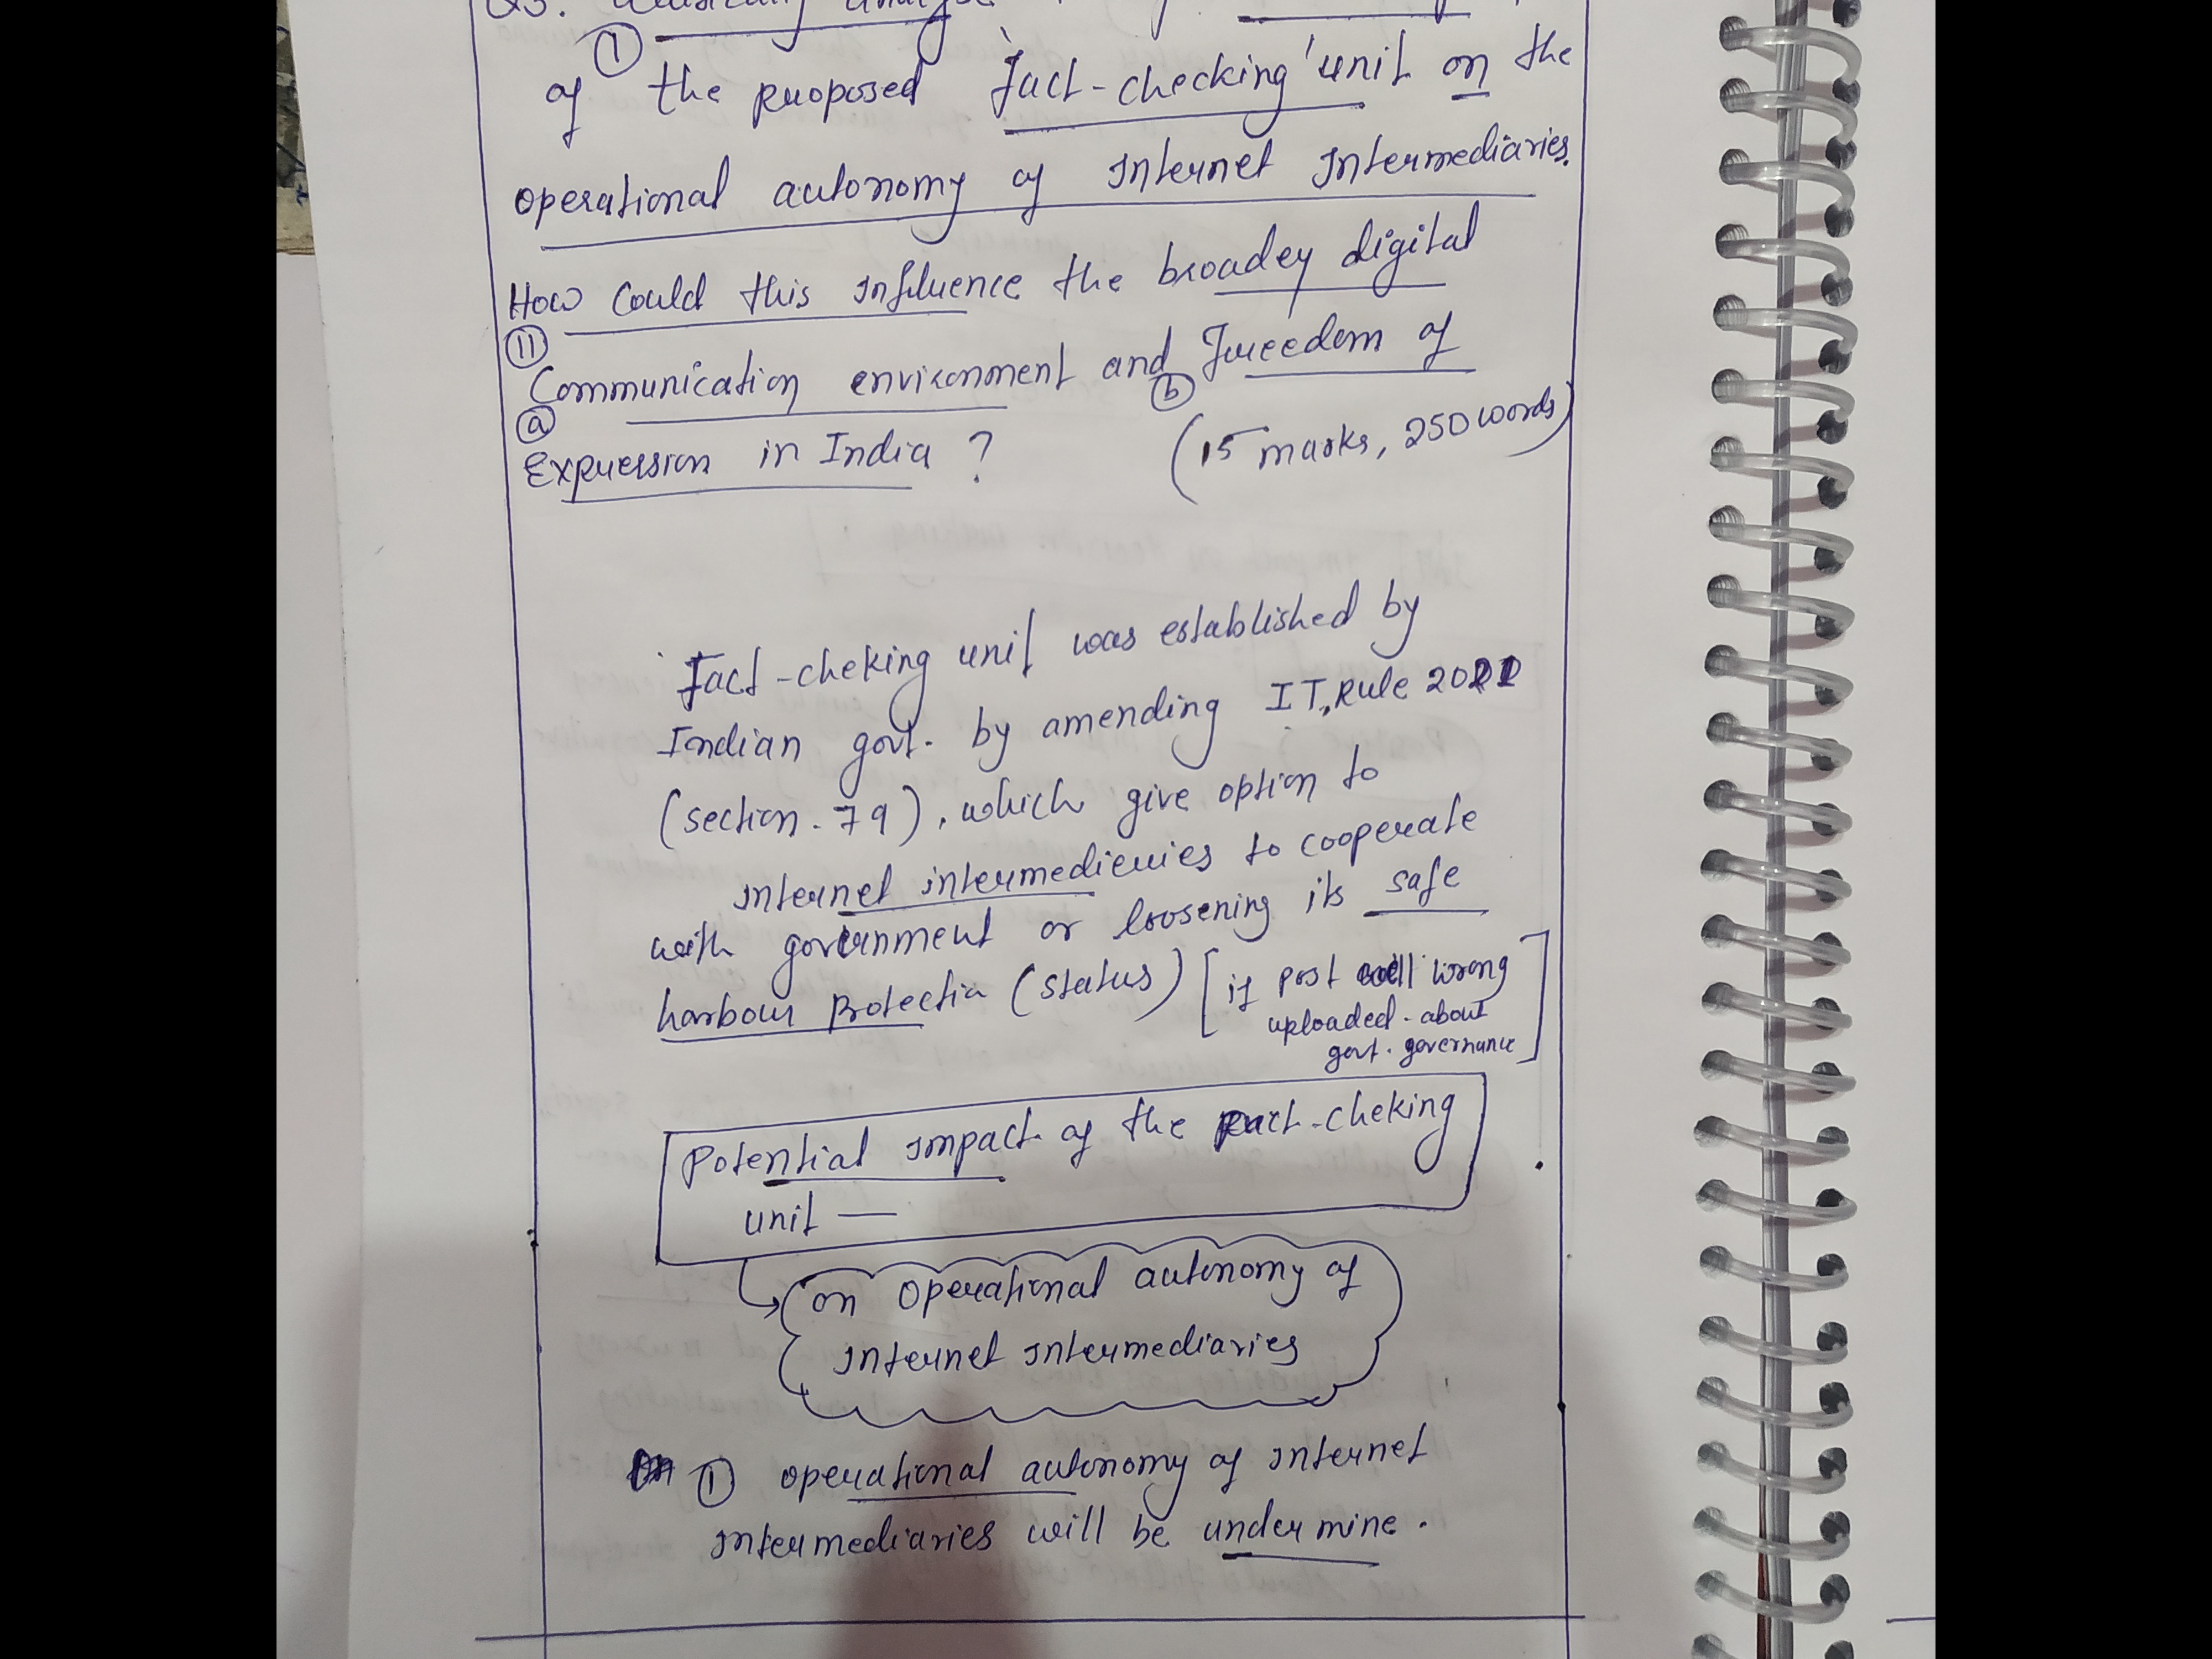 Q3. Critically analyse
① of the proposed 'fact-checking' unit on the
operational autonomy of Internet Intermediaries.
How could this influence the broadey digital
⑪ Communication environment and Freedom of
ⓐ ⓑ
Expression in India ? (15 marks, 250 words)
Fact-cheking unit was established by
Indian govt. by amending IT, Rule 2021
(section. 79), which give option to
internet intermedieries to cooperate
with government or loosening its safe
harbour Protectin (status) [if post will wrong
uploaded. about
govt. governance]
Potential impact of the fact-cheking
unit —
on Operational autonomy of
internet intermediaries
① operational autonomy of internet
intermediaries will be undermine.